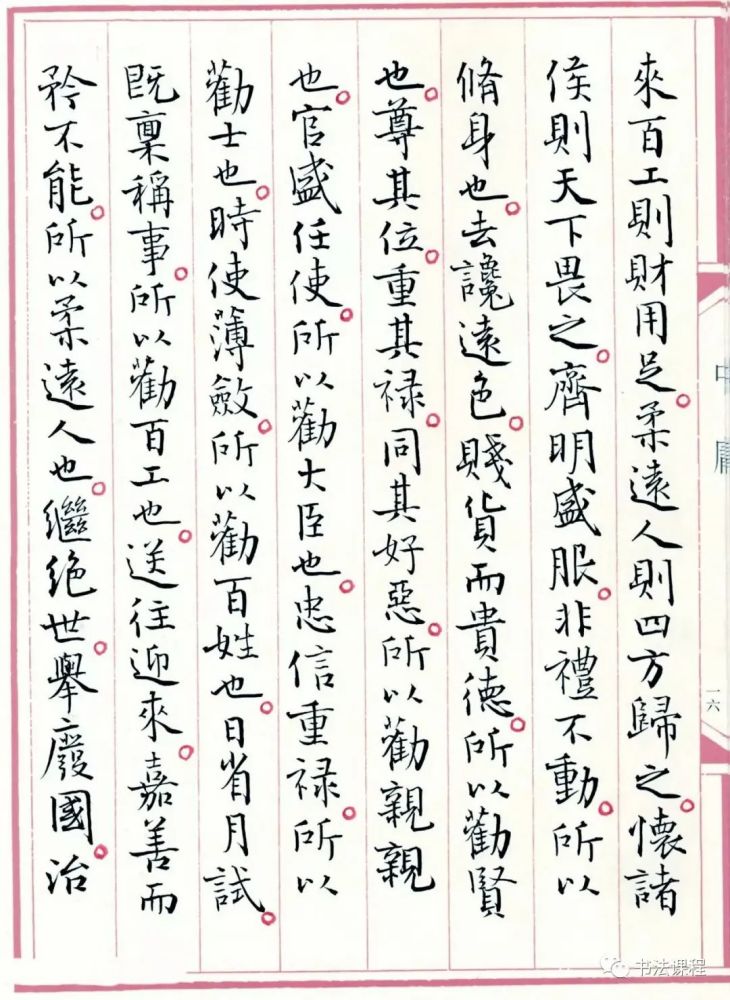 來百工則財用足。柔遠人則四方歸之。懷諸
侯則天下畏之。齊明盛服。非禮不動。所以
脩身也。去讒遠色。賤貨而貴德。所以勸賢
也。尊其位。重其祿。同其好惡。所以勸親親
也。官盛任使。所以勸大臣也。忠信重祿。所以
勸士也。時使薄斂。所以勸百姓也。日省月試。
既稟稱事。所以勸百工也。送往迎來。嘉善而
矜不能。所以柔遠人也。繼絕世。舉廢國。治
中庸
一六
书法课程